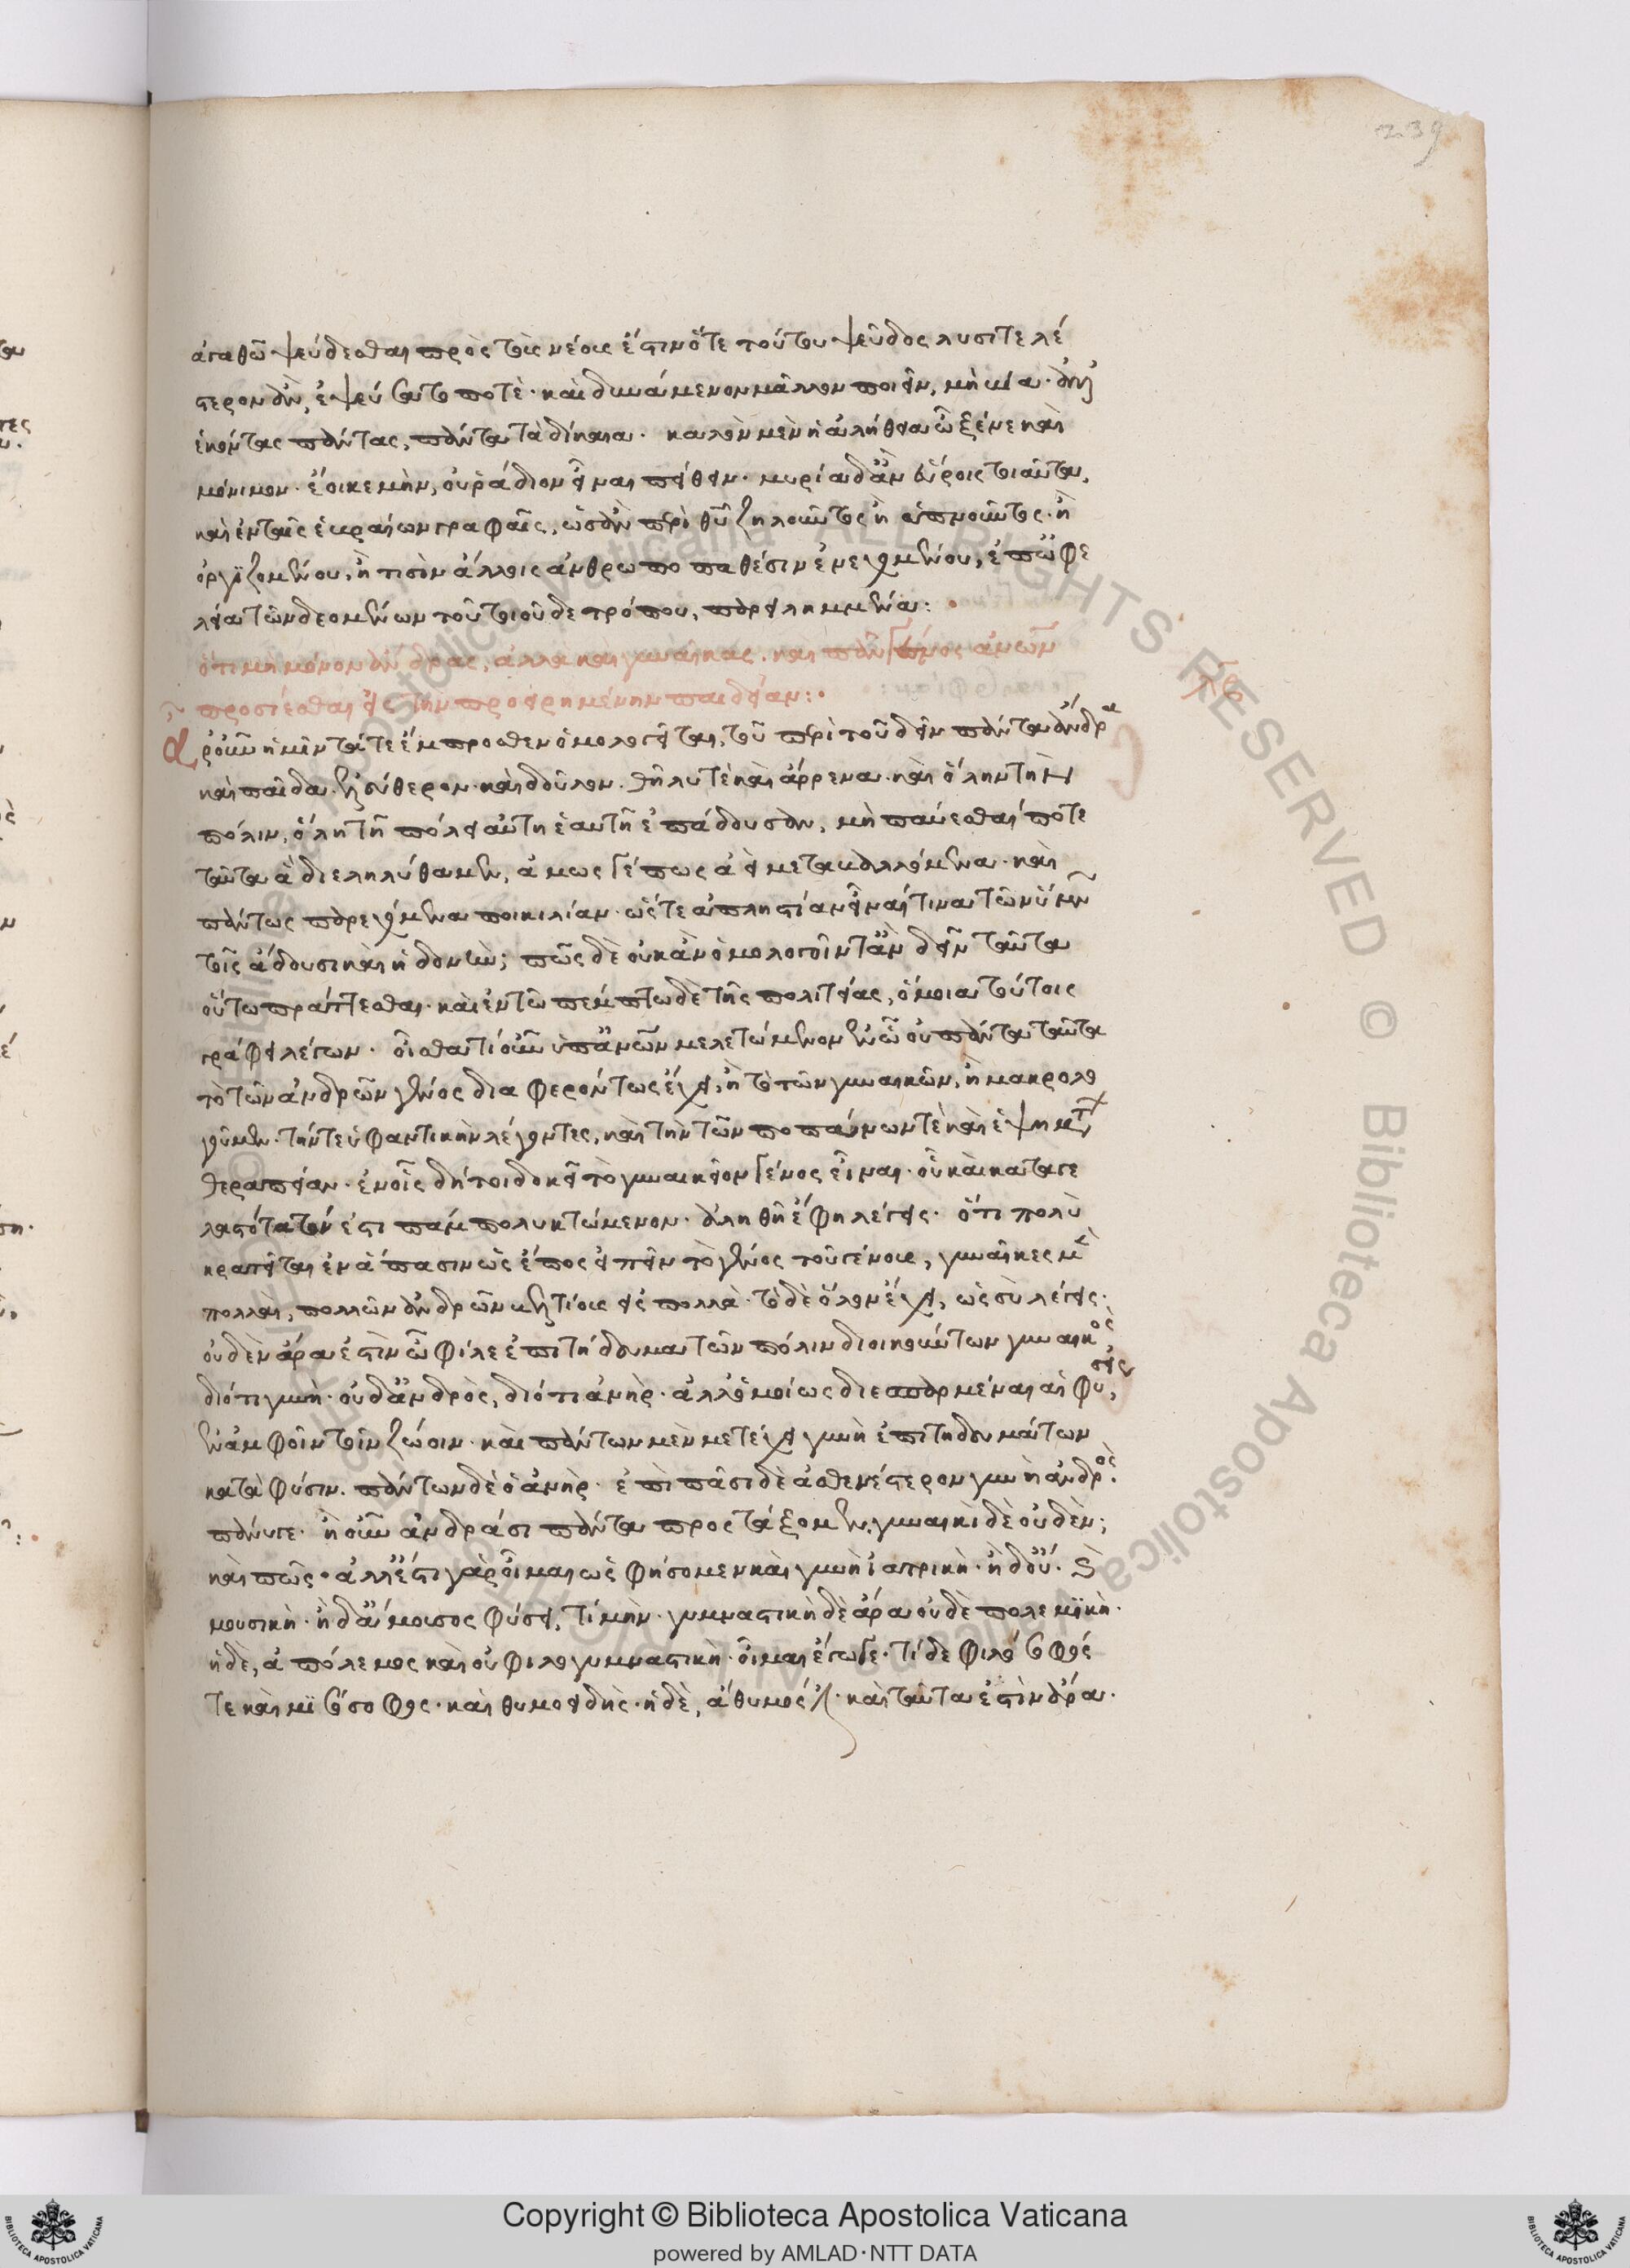 ἀγαθῶ ψεύδεσθαι πρὸς τοὺς νέους ἔστιν ὅτε τούτου ψεῦδος λυσιτελέ
στερον ἂν, ἐψεύσατο ποτὲ· καὶ δυνάμενον μᾶλλον ποιεῖν, μὴ βία· ἀλλ'
ἑκόντας πάντας, πάντα τὰ δίκαια· καλὸν μὲν ἡ ἀλήθεια ὦ ξένε καὶ
μόνιμον· ἔοικε μὴν, οὐ ῥάδιον εἶναι πείθειν· μυρία δ' ἂν εὕροις τοιαῦτα,
καὶ ἐν ταῖς ἑβραίων γραφαῖς, ὡς ἂν περὶ θεοῦ ζηλοῦντος ἢ ὑπνοῦντος· ἢ
ὀργϊζομένου, ἤ τισιν ἄλλοις ἀνθρωποπαθέσιν ἐνεχομένου, ἐπ' ὠφε
λεία τῶν δεομένων τοῦ τοιοῦδε τρόπου, παρειλημμένα:
ὅτι μὴ μόνον ἄνδρας, ἀλλὰ καὶ γυναῖκας, καὶ πᾶν γένος ἀνθρώπων
προσίεσθαι εἰς τὴν προειρημένην παιδείαν:
λβ
ἆρ' οὖν ἡμῖν τά τε ἔμπροσθεν ὁμολογεῖται, τοῦ περὶ τοῦ δεῖν πάντα ἄνδρα
καὶ παῖδα· ἐλεύθερον· καὶ δοῦλον· θῆλυ τὲ καὶ ἄρρενα· καὶ ὅλην τὴν
πόλιν, ὅλη τῆ πόλει αὐτὴ ἑαυτῆ ἐπάδουσαν, μὴ παύεσθαί ποτε
ταῦτα ἃ διεληλύθαμεν, ἄμως γέ πως ἀεὶ μεταβαλλόμενα· καὶ
πάντως παρεχόμενα ποικιλίαν· ὥστε ἀπληστίαν εἶναί τινα τῶν ὕμνων
τοῖς ἄδουσι καὶ ἡδονὴν; πῶς δὲ οὐκ ἂν ὁμολογοῖντ' ἂν δεῖν ταῦτα
οὕτω πράττεσθαι· καὶ ἐν τῶ πέμπτω δὲ τῆς πολιτείας, ὅμοια τούτοις
γράφει λέγων· οἶσθά τι οὖν ὑπ' ἀνθρώπων μελετώμενον ἐν ὧ οὐ πάντα ταῦτα
τὸ τῶν ἀνδρῶν γένος διαφερόντως ἔχει, ἢ τὸ τῶν γυναικῶν, ἢ μακρολο
γοῦμεν· τήν τε ὑφαντικὴν λέγοντες, καὶ τὴν τῶν ποπάνων τὲ καὶ ἑψημάτων
θεραπείαν· ἐν οἷς δή τοι δοκεῖ τὸ γυναικεῖον γένος εἶναι· οὗ καὶ καταγε
λαστότατόν ἐστι πάμπολυ ἡττώμενον· ἀληθῆ ἔφη λέγεις· ὅτι πολὺ
κρατεῖται ἐν ἅπασιν ὡς ἔπος εἰπεῖν τὸ γένος τοῦ γένους, γυναῖκες μὲν
πολλαὶ, πολλῶν ἀνδρῶν βελτίους εἰς πολλὰ· τὸ δὲ ὅλον ἔχει, ὡς σὺ λέγεις·
οὐδὲν ἄρα ἐστὶν ὦ φίλε ἐπιτήδευμα τῶν πόλιν διοικούντων γυναικὸς
διότι γυνὴ· οὐδ' ἀνδρὸς, διότι ἀνὴρ· ἀλλ' ὁμοίως διεσπαρμέναι αἱ φύσεις
ἐν ἀμφοῖν τοῖν ζώοιν· καὶ πάντων μὲν μετέχει γυνὴ ἐπιτηδευμάτων
κατὰ φύσιν· πάντων δὲ ὁ ἀνὴρ· ἐπὶ πᾶσι δὲ ἀσθενέστερον γυνὴ ἀνδρὸς·
πάνυ γε· ἦ οὖν ἀνδράσι πάντα προστάξομεν, γυναικὶ δὲ οὐδὲν;
καὶ πῶς· ἀλλ' ἔστι γὰρ οἶμαι ὡς φήσομεν καὶ γυνὴ ἰατρικὴ· ἡ δ' οὔ· καὶ
μουσικὴ· ἡ δ' ἄμουσος φύσει, τί μὴν· γυμναστικὴ δὲ ἄρα οὐδὲ πολεμϊκὴ·
ἡ δὲ, ἀπόλεμος καὶ οὐ φιλογυμναστικὴ· οἶμαι ἔγωγε· τί δὲ φιλόσοφός
τε καὶ μϊσόσοφος· καὶ θυμοειδὴς· ἡ δὲ, ἄθυμός ἐστι· καὶ ταῦτα ἐστὶν ἄρα·
239